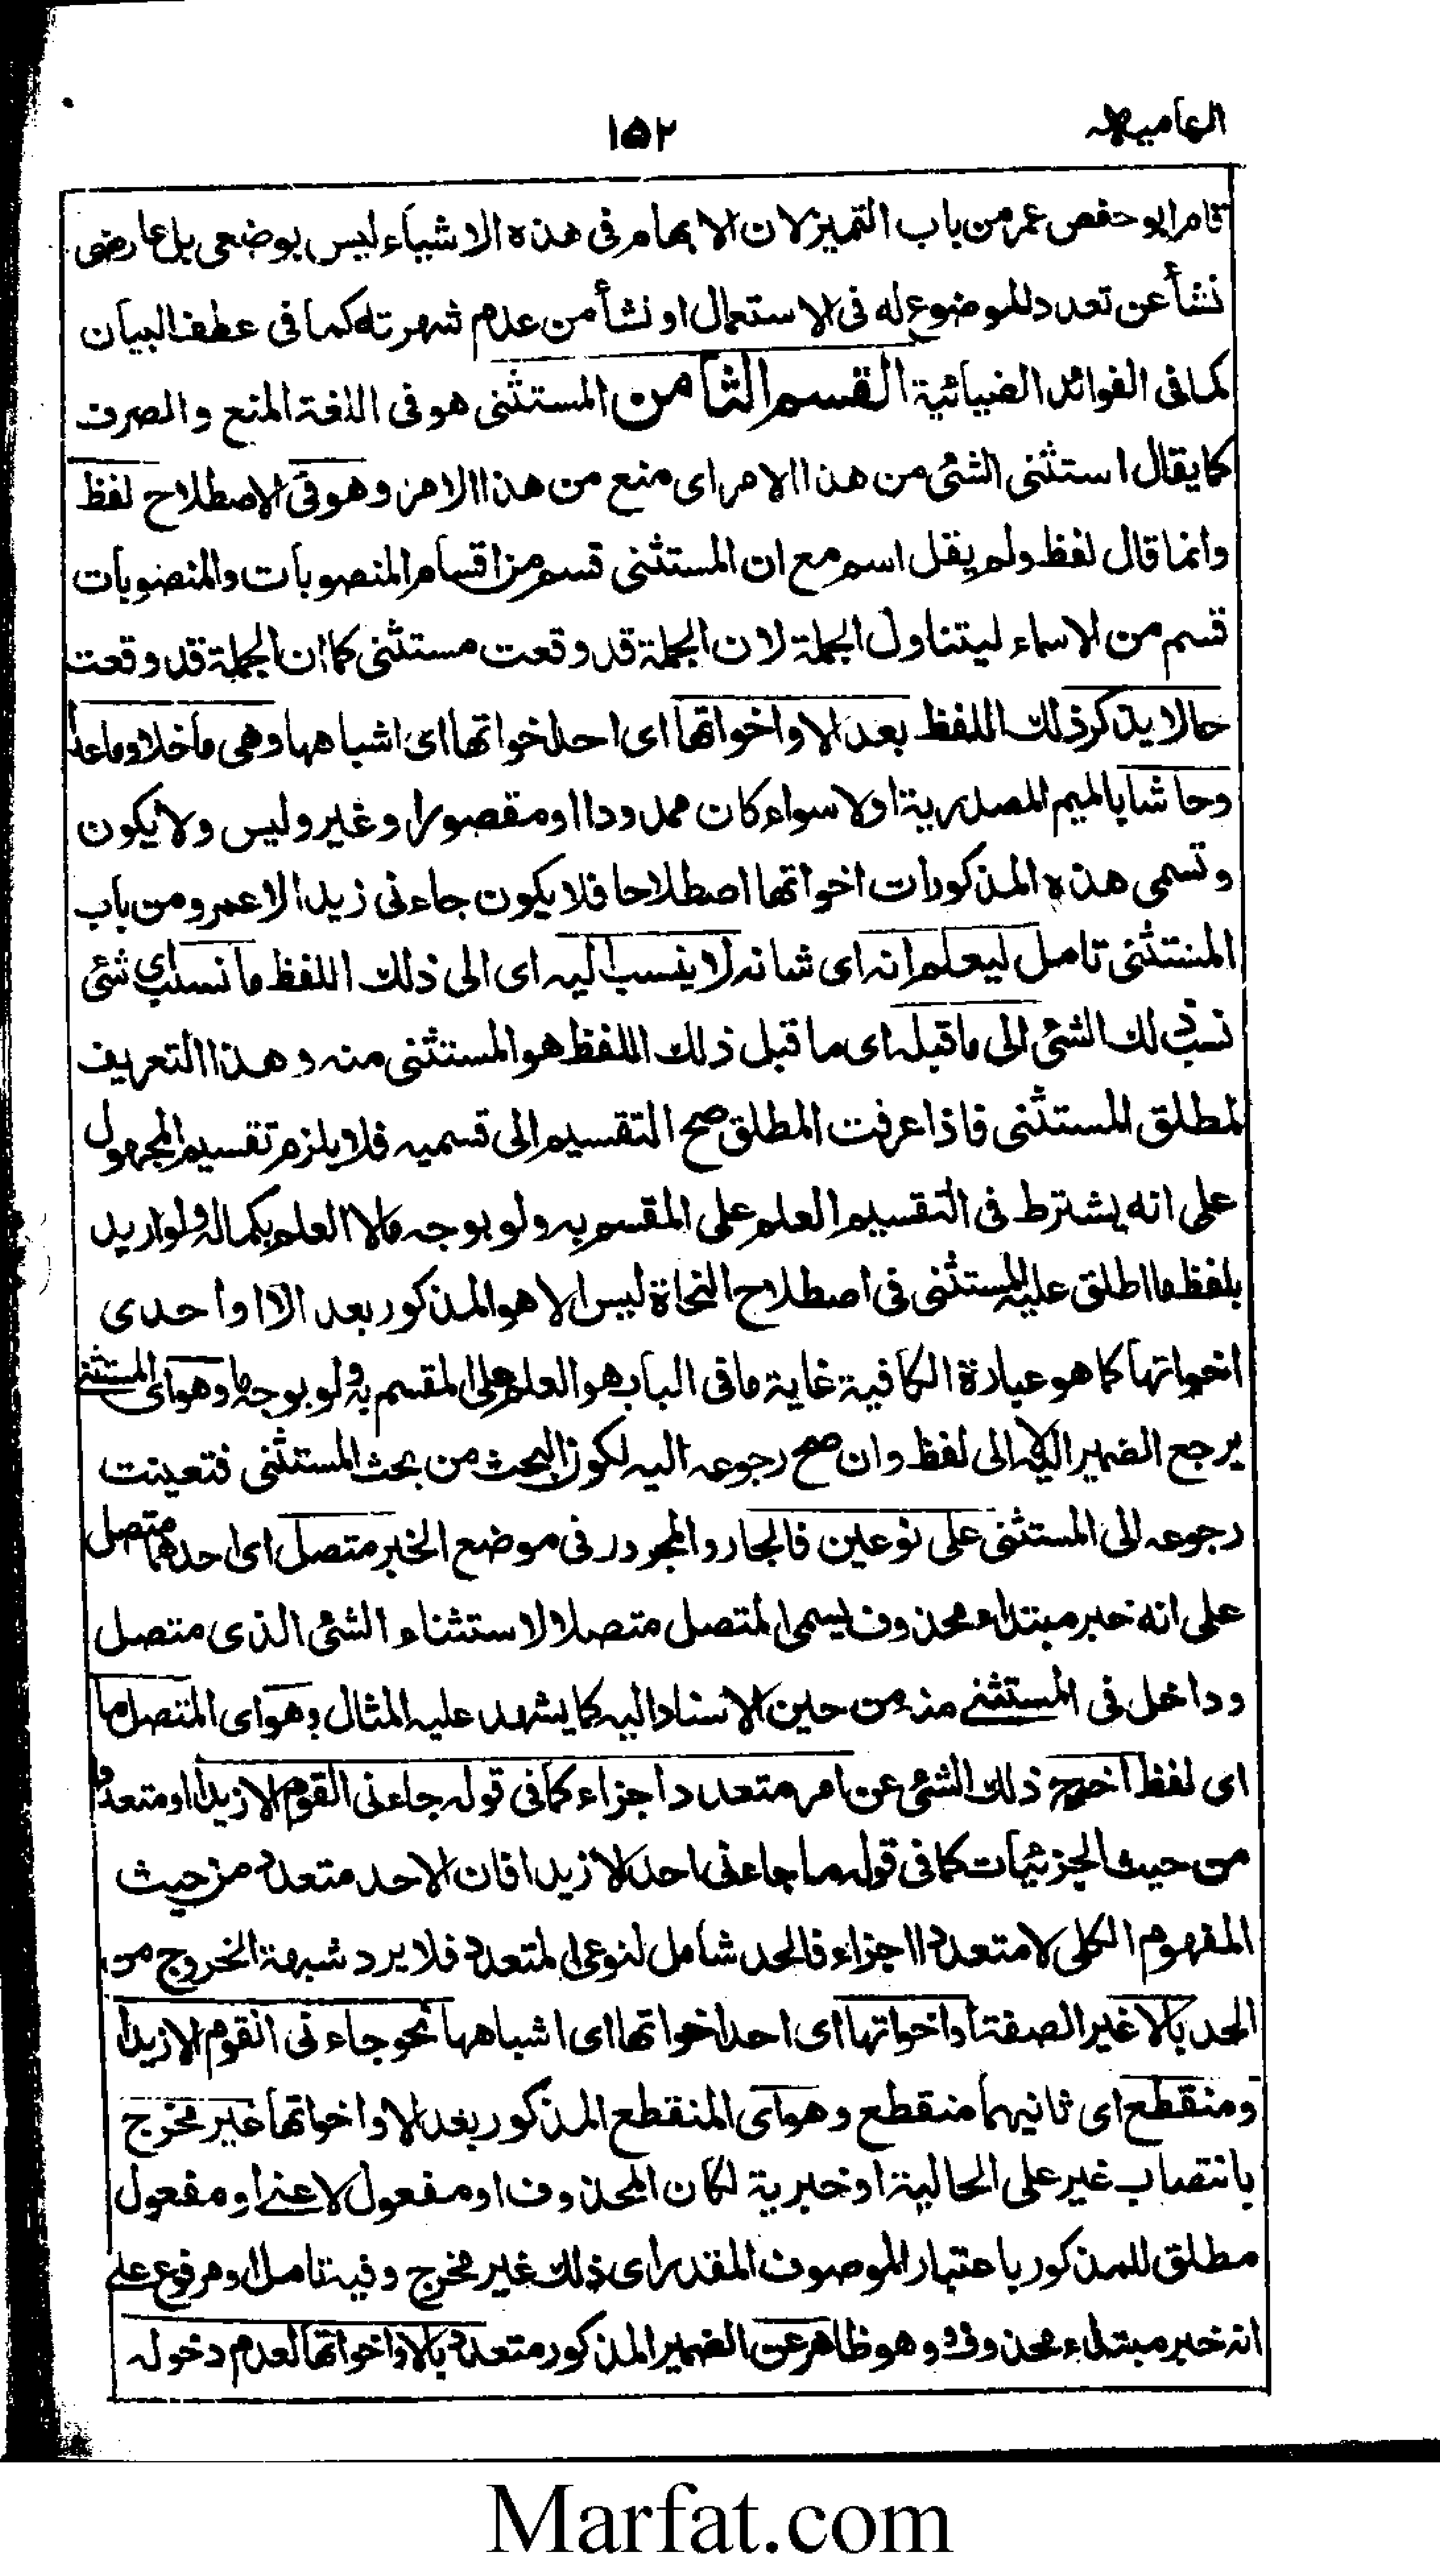 ۱۵۲
قام ابو حفص عمر من باب التمیز لان الابهام فی هذه الاشیاء لیس بوضعی بل عارضی
نشأ عن تعدد الموضوع له فی الاستعمال او نشأ من عدم شهرته کما فی عطف البیان
کما فی الفوائد الضیائیة القسم الثامن المستثنی هو فی اللغة المنع والصرف
کما یقال استثنی الشئ من هذا الامر ای منع من هذا الامر وهو فی الاصطلاح لفظ
وانما قال لفظ ولم یقل اسم مع ان المستثنی قسم من اقسام المنصوبات والمنصوبات
قسم من الاسماء لیتناول الجملة لان الجملة قد وقعت مستثنی کما ان الجملة قد وقعت
حالا یذکر ذلك اللفظ بعد الا واخواتها ای احد اخواتها ای اشباهها وهی ما خلا وما عدا
وحاشا بالمیم المصدریة اولا سواء کان ممدودا او مقصورا وغیر ولیس ولا یکون
وتسمی هذه المذکورات اخواتها اصطلاحا فلا یکون جاءنی زید الا عمرو من باب
المستثنی تامل لیعلم انه ای شانه لا ینسب الیه ای الی ذلك اللفظ ما نسب ای شئ
نسب ذلك الشئ الی ما قبله ای ما قبل ذلك اللفظ هو المستثنی منه وهذا التعریف
لمطلق المستثنی فاذا عرفت المطلق صح التقسیم الی قسمیه فلا یلزم تقسیم المجهول
علی انه یشترط فی التقسیم العلم علی المقسم به ولو بوجه ما لا العلم بکماله ولو ارید
بلفظ ما اطلق علیه المستثنی فی اصطلاح النحاة لیس الا هو المذکور بعد الا او احدی
اخواتها کما هو عبارة الکافیة غایة ما فی الباب هو العلم علی المقسم به ولو بوجه ما وهو ای المستثنی
یرجع الضمیر الیه لا الی لفظ وان صح رجوعه الیه لکون البحث من بحث المستثنی فتعینت
رجوعه الی المستثنی علی نوعین فالجار والمجرور فی موضع الخبر متصل ای احدهما متصل
علی انه خبر مبتداء محذوف یسمی المتصل متصلا لاستثناء الشئ الذی متصل
وداخل فی المستثنی منه من حین الاسناد الیه کما یشهد علیه المثال وهو ای المتصل ما
ای لفظ اخرج ذلك الشئ عن امر متعدد اجزاء کما فی قوله جاءنی القوم الا زیدا او متعددا
من حیث الجزئیات کما فی قوله ما جاءنی احد الا زیدا فان الاحد متعدد من حیث
المفهوم الکلی لا متعدد اجزاء فالحد شامل لنوعی المتعدد فلا یرد شبهة الخروج من
الحد بالا غیر الصفة واخواتها ای احد اخواتها ای اشباهها نحو جاءنی القوم الا زیدا
ومنقطع ای ثانیهما منقطع وهو ای المنقطع المذکور بعد الا واخواتها غیر مخرج
بانتصاب غیر علی الحالیة او خبریة لکان المحذوف او مفعول لاعنی او مفعول
مطلق للمذکور باعتبار الموصوف المقدر ای ذلك غیر مخرج وفیه تامل او مرفوع علی
انه خبر مبتداء محذوف وهو ظاهر عن الضمیر المذکور متعدد بالا واخواتها لعدم دخوله
Marfat.com